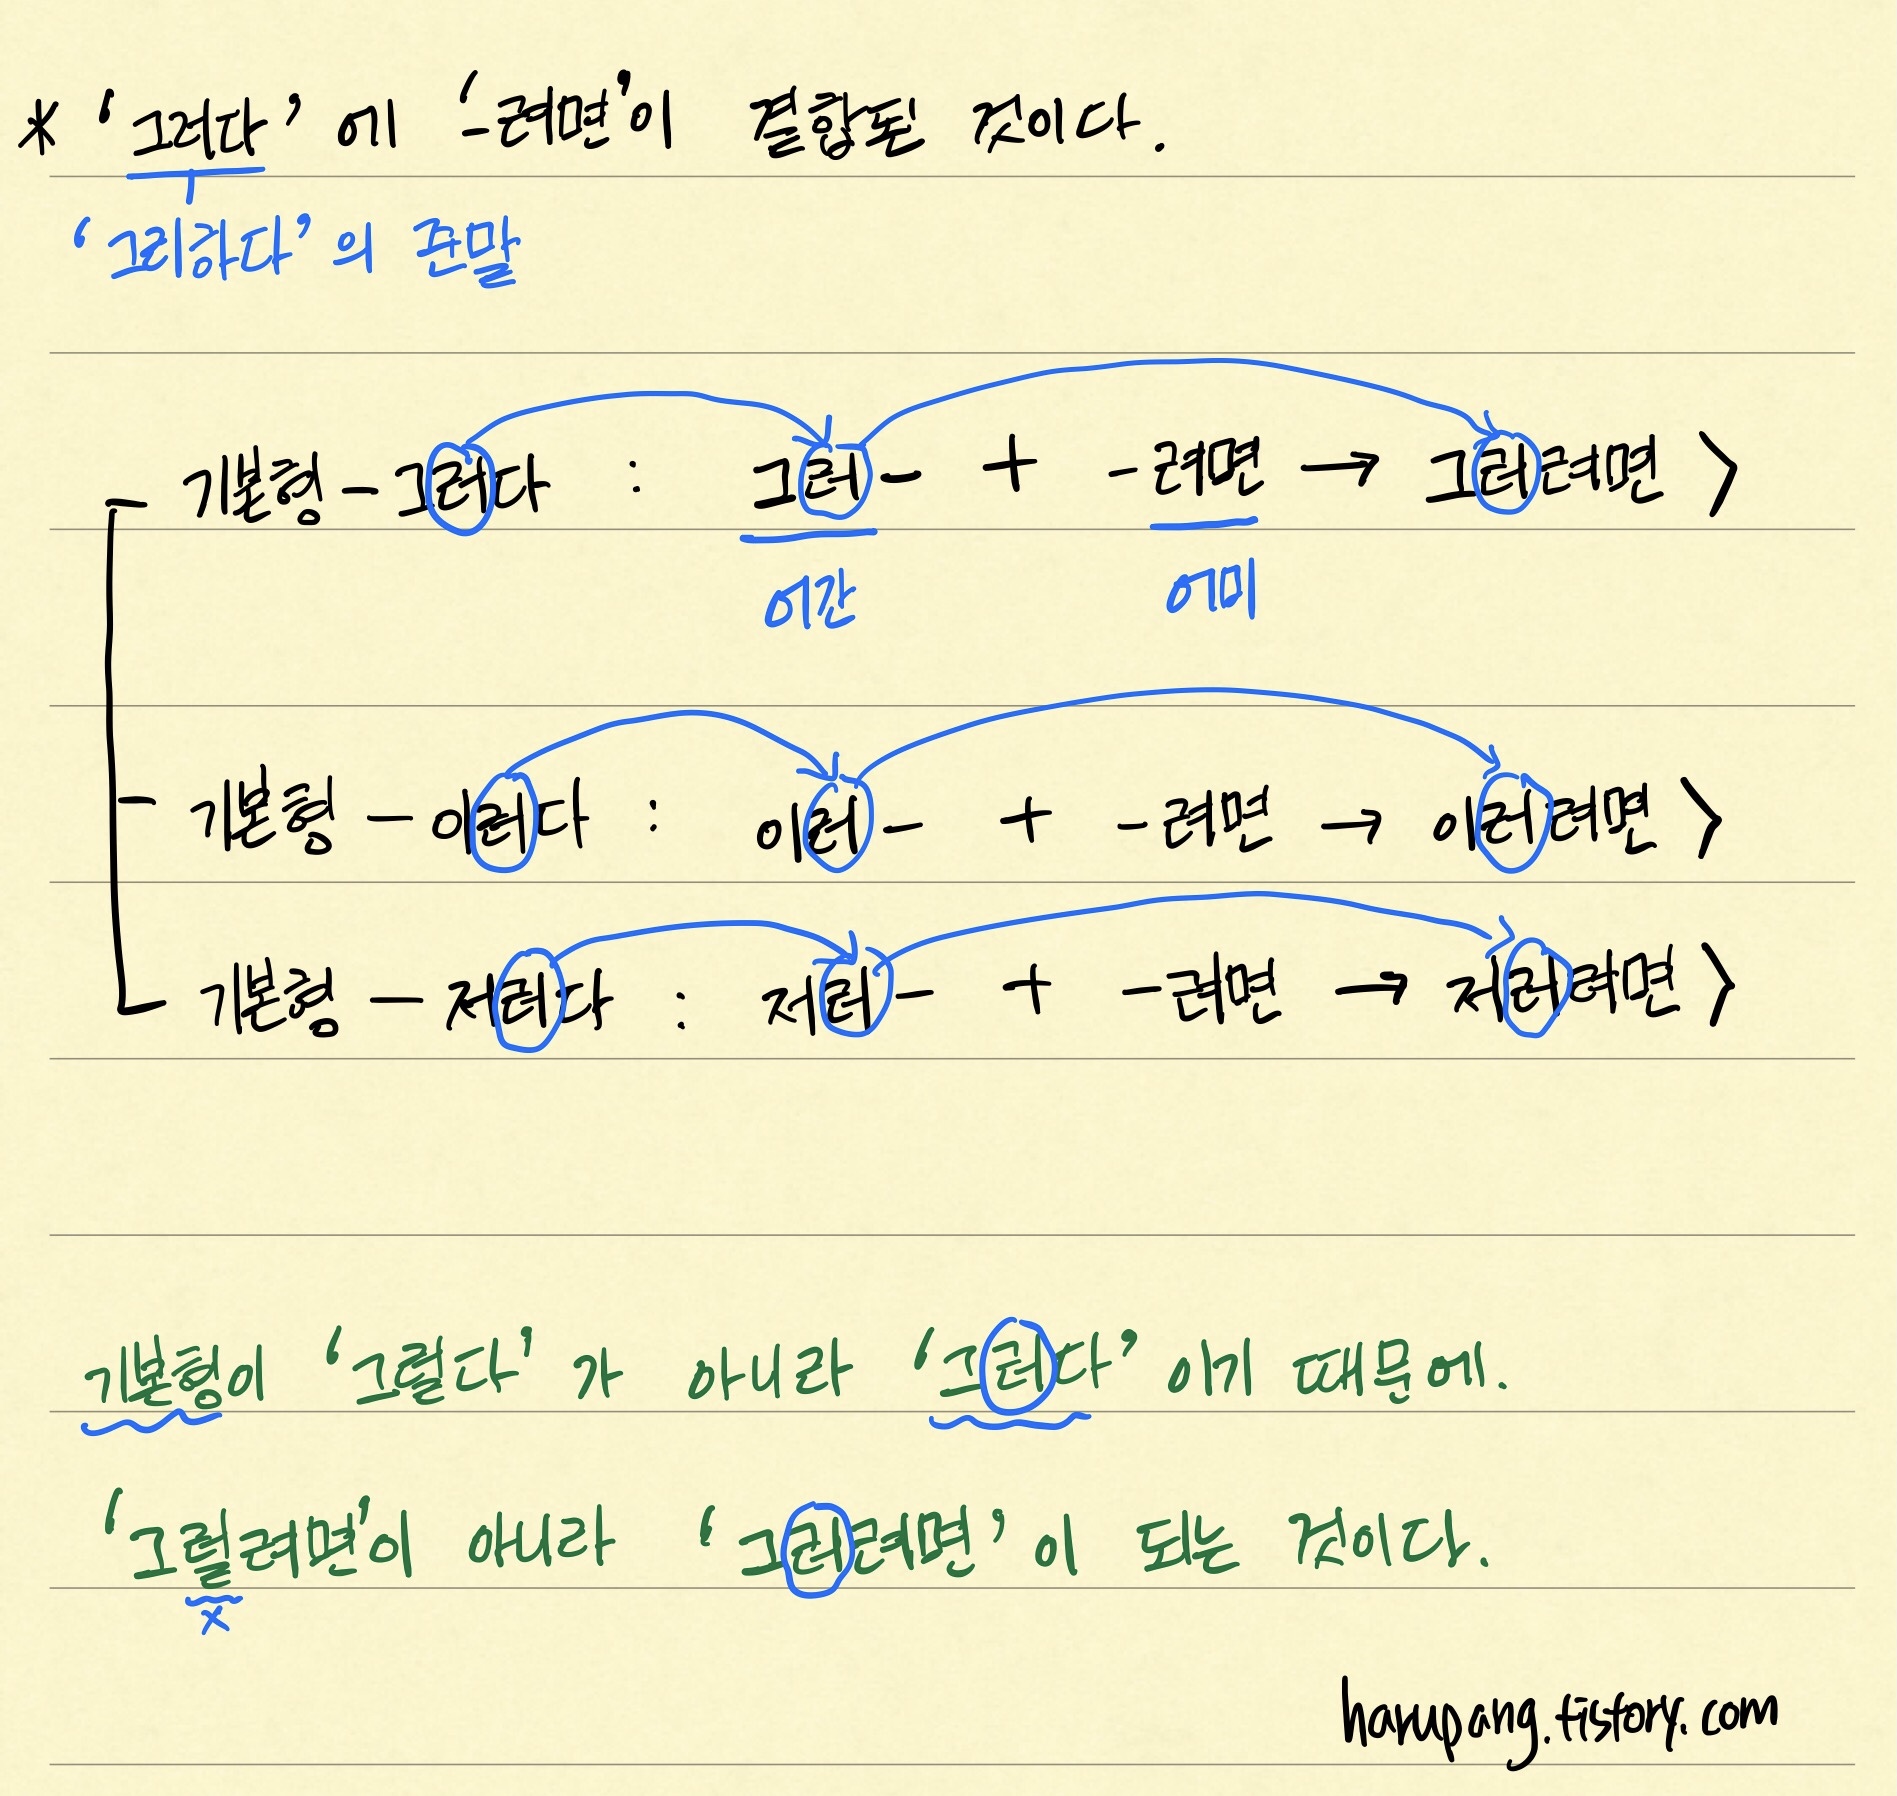 * '그러다'에 '-려면'이 결합된 것이다.
'그리하다'의 준말
기본형 - 그러다 : 그러- + -려면 → 그러려면 >
어간 어미
기본형 - 이러다 : 이러- + -려면 → 이러려면 >
기본형 - 저러다 : 저러- + -려면 → 저러려면 >
기본형이 '그렇다'가 아니라 '그러다'이기 때문에.
'그럴려면'이 아니라 '그러려면'이 되는 것이다.
x
harupang.tistory.com